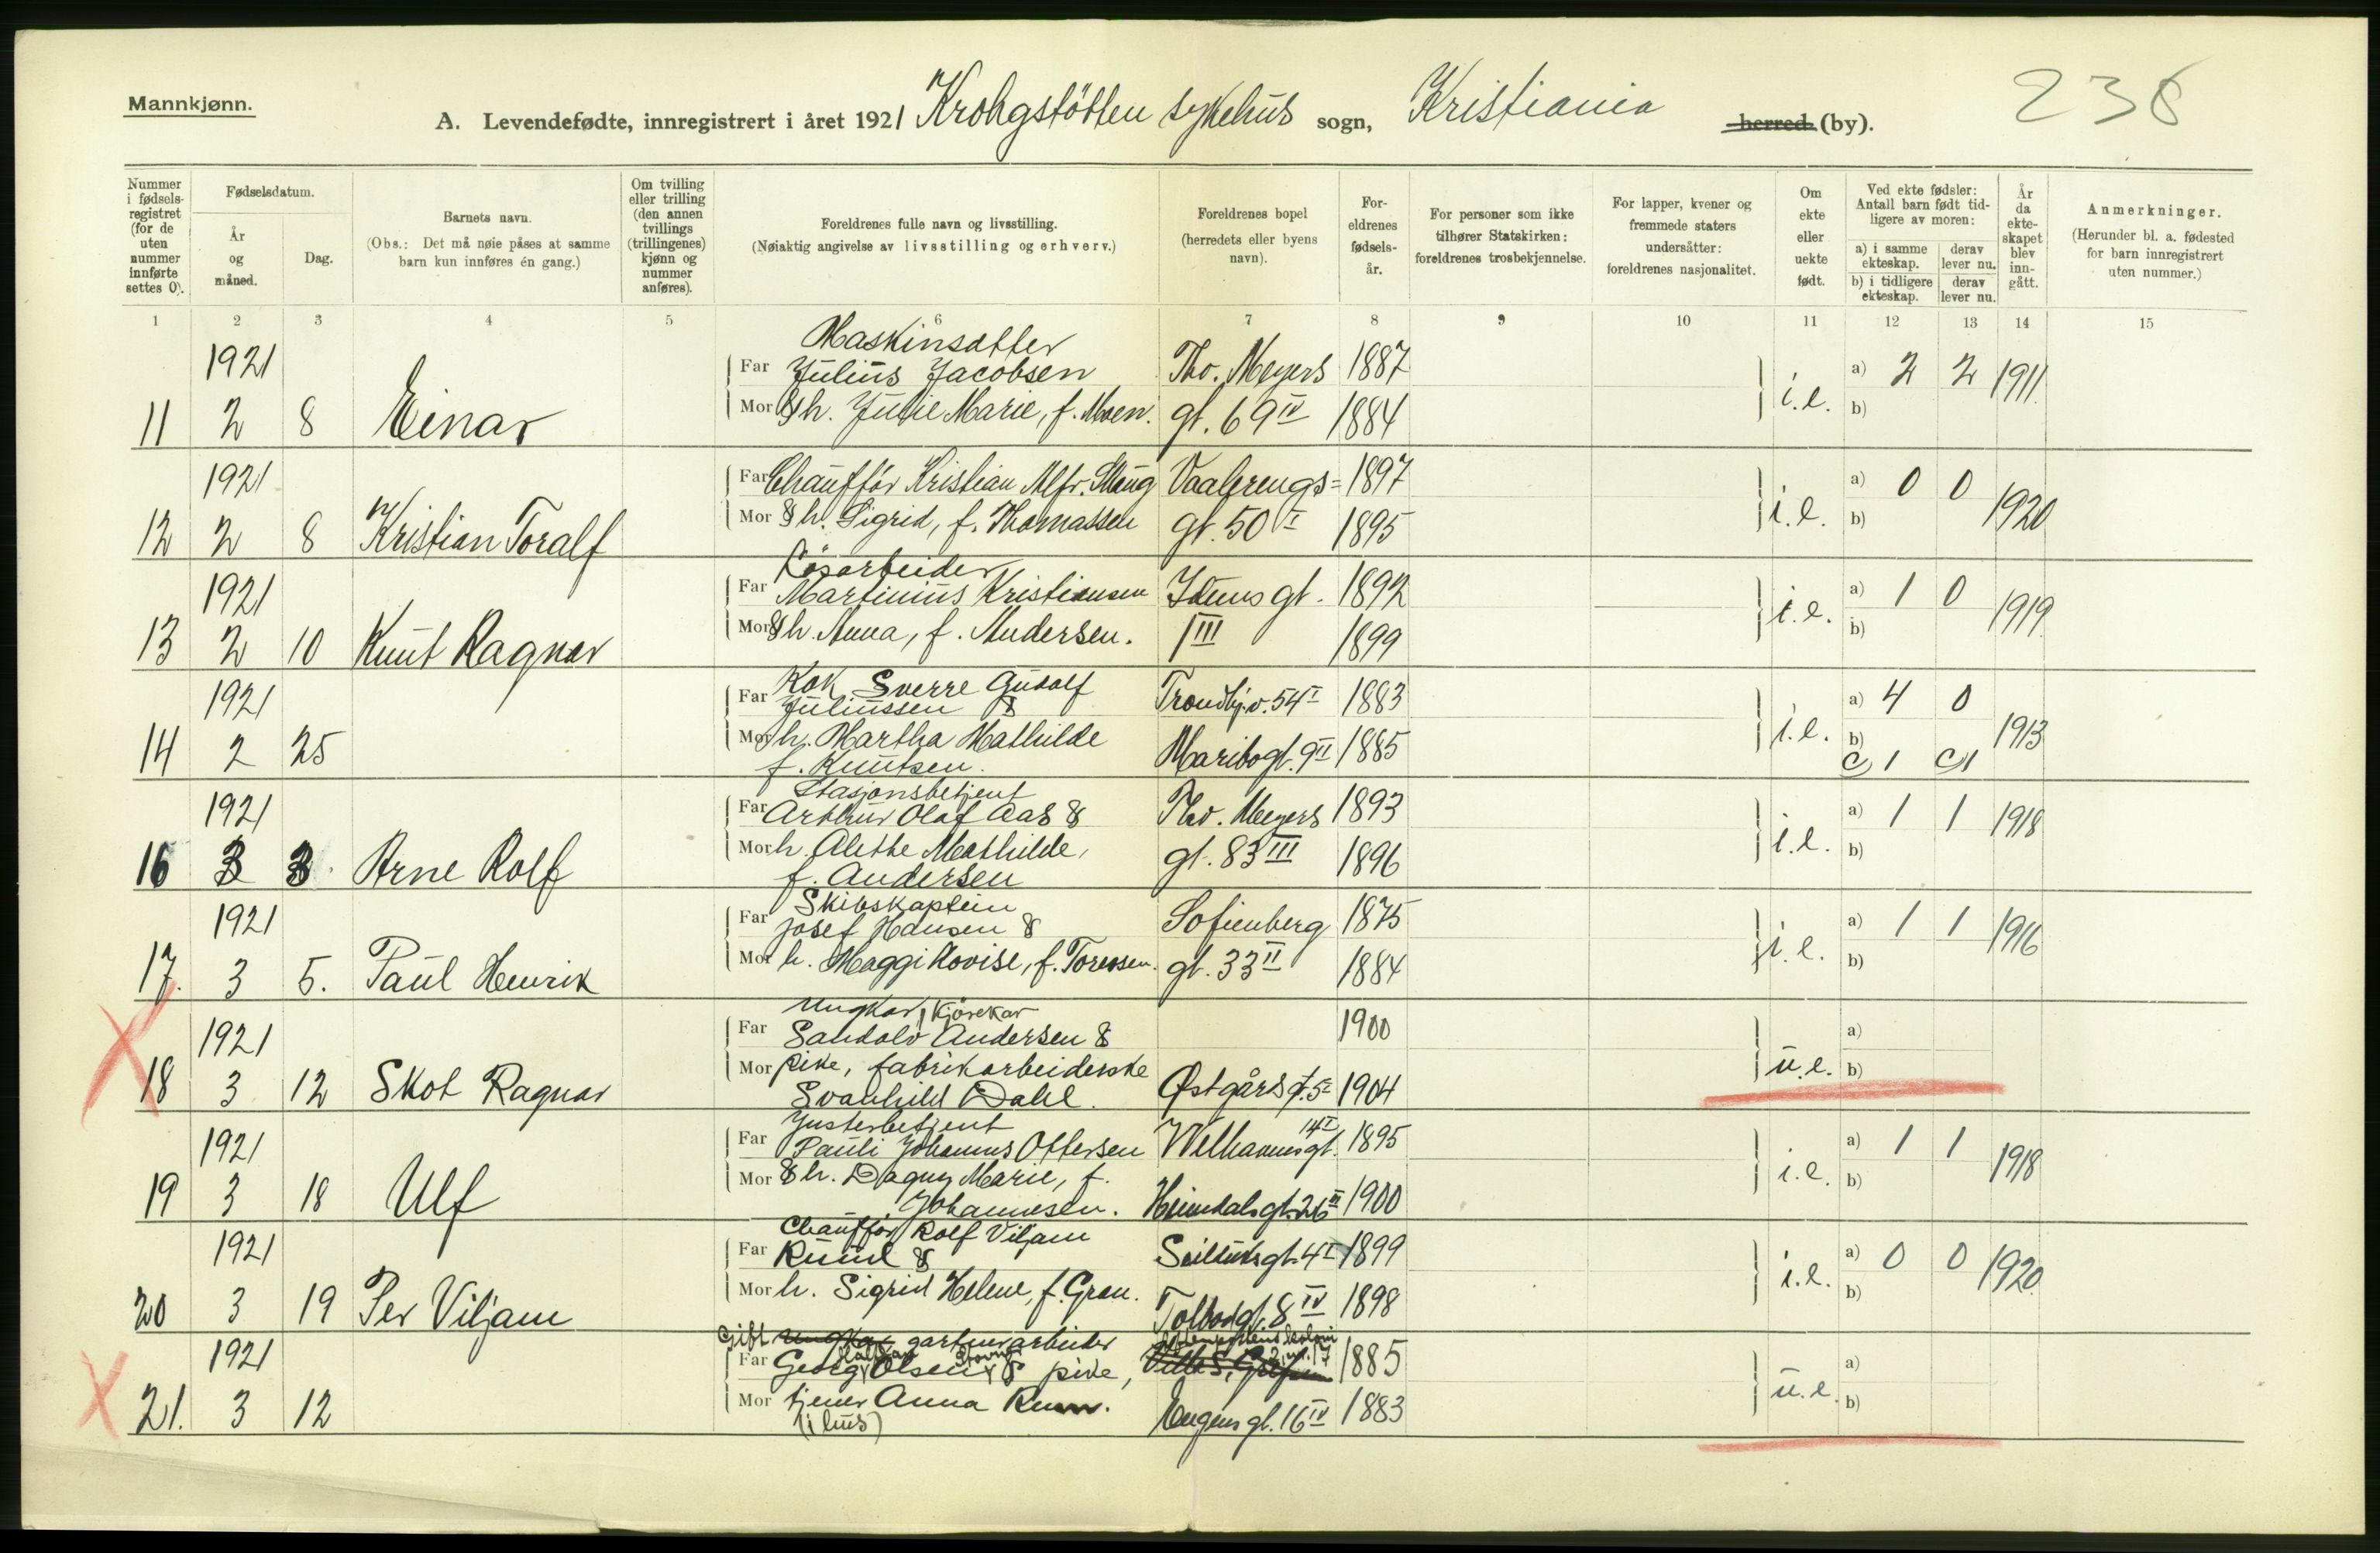 Mannkjønn.
A. Levendefødte, innregistrert i året 1921 Krohgstøtten sykehus sogn, Kristiania herred (by).
236
Nummer i fødselsregistret (for de uten nummer innførte settes 0).
Fødselsdatum.
År og måned.
Dag.
Barnets navn.
(Obs.: Det må nøie påses at samme barn kun innføres én gang.)
Om tvilling eller trilling (den annen tvillings (trillingenes) kjønn og nummer anføres).
Foreldrenes fulle navn og livsstilling.
(Nøiaktig angivelse av livsstilling og erhverv.)
Foreldrenes bopel
(herredets eller byens navn).
Foreldrenes fødselsår.
For personer som ikke tilhører Statskirken: foreldrenes trosbekjennelse.
For lapper, kvener og fremmede staters undersåtter: foreldrenes nasjonalitet.
Om ekte eller uekte født.
Ved ekte fødsler: Antall barn født tidligere av moren:
a) i samme ekteskap. derav lever nu.
b) i tidligere ekteskap. derav lever nu.
År da ekteskapet blev inngått.
Anmerkninger.
(Herunder bl. a. fødested for barn innregistrert uten nummer.)
1 2 3 4 5 6 7 8 9 10 11 12 13 14 15
Maskinsatter
1921 Far Julius Jacobsen Tho. Meyers 1887 a) 2 2 1911
11 2 8 Einar Mor & h. Julie Marie, f. Moen. gt. 69 IV 1884 i.e. b)
1921 Far Chauffør Kristian Alfr. Vaalerengs= 1897 a) 0 0 1920
12 2 8 Kristian Toralf Mor & h. Sigrid, f. Thomassen gt. 50 I 1895 i.e. b)
Løsarbeider
1921 Far Martinius Kristiansen Iduns gt. 1892 a) 1 0 1919
13 2 10 Knut Ragnar Mor & h. Anna, f. Andersen. 1 III 1899 i.e. b)
Kok Sverre Gudolf
1921 Far Juliussen & Trondhj.v. 54 I 1883 a) 4 0 1913
14 2 25 Mor h. Martha Mathilde Maribogt. 9 II 1885 i.e. b)
f. Knutsen. c) 1 c) 1
Stasjonsbetjent
1921 Far Arthur Olaf Aas & Tho. Meyers 1893 a) 1 1 1918
16 3 3. Arne Rolf Mor h. Alethe Mathilde, gt. 83 III 1896 i.e. b)
f. Andersen
Skibskaptein
1921 Far Josef Hansen & Sofienberg 1875 a) 1 1 1916
17. 3 5. Paul Henrik Mor h. Maggi Lovise, f. Toressen. gt. 33 II 1884 i.e. b)
Ungkar, Kjørekar
1921 Far Sandolv Andersen & 1900 a)
18 3 12 Skot Ragnar Mor pike, fabrikarbeiderske u.e. b)
Svanhild Dahl. Østgårds gt. 5 I 1904
Justerbetjent 14 I
1921 Far Pauli Johannes Ottersen Welhavensgt. 1895 a) 1 1 1918
19 3 18 Ulf Mor & h. Dagny Marie, f. i.e. b)
Johannesen. Heimdalsgt. 26 III 1900
Chauffør Rolf Viljam
1921 Far Ruud & Seilduksgt. 4 I 1899 a) 0 0 1920
20 3 19 Per Viljam Mor h. Sigrid Helene, f. Gran. Tolbodgt. 8 IV 1898 i.e. b)
Gift Ungkar gartnerarbeider
1921 Far Georg Olsen & pike, 1885 a)
21. 3 12 Mor tjener Anna Eugens gt. 16 IV 1883 u.e. b)
(i hus)